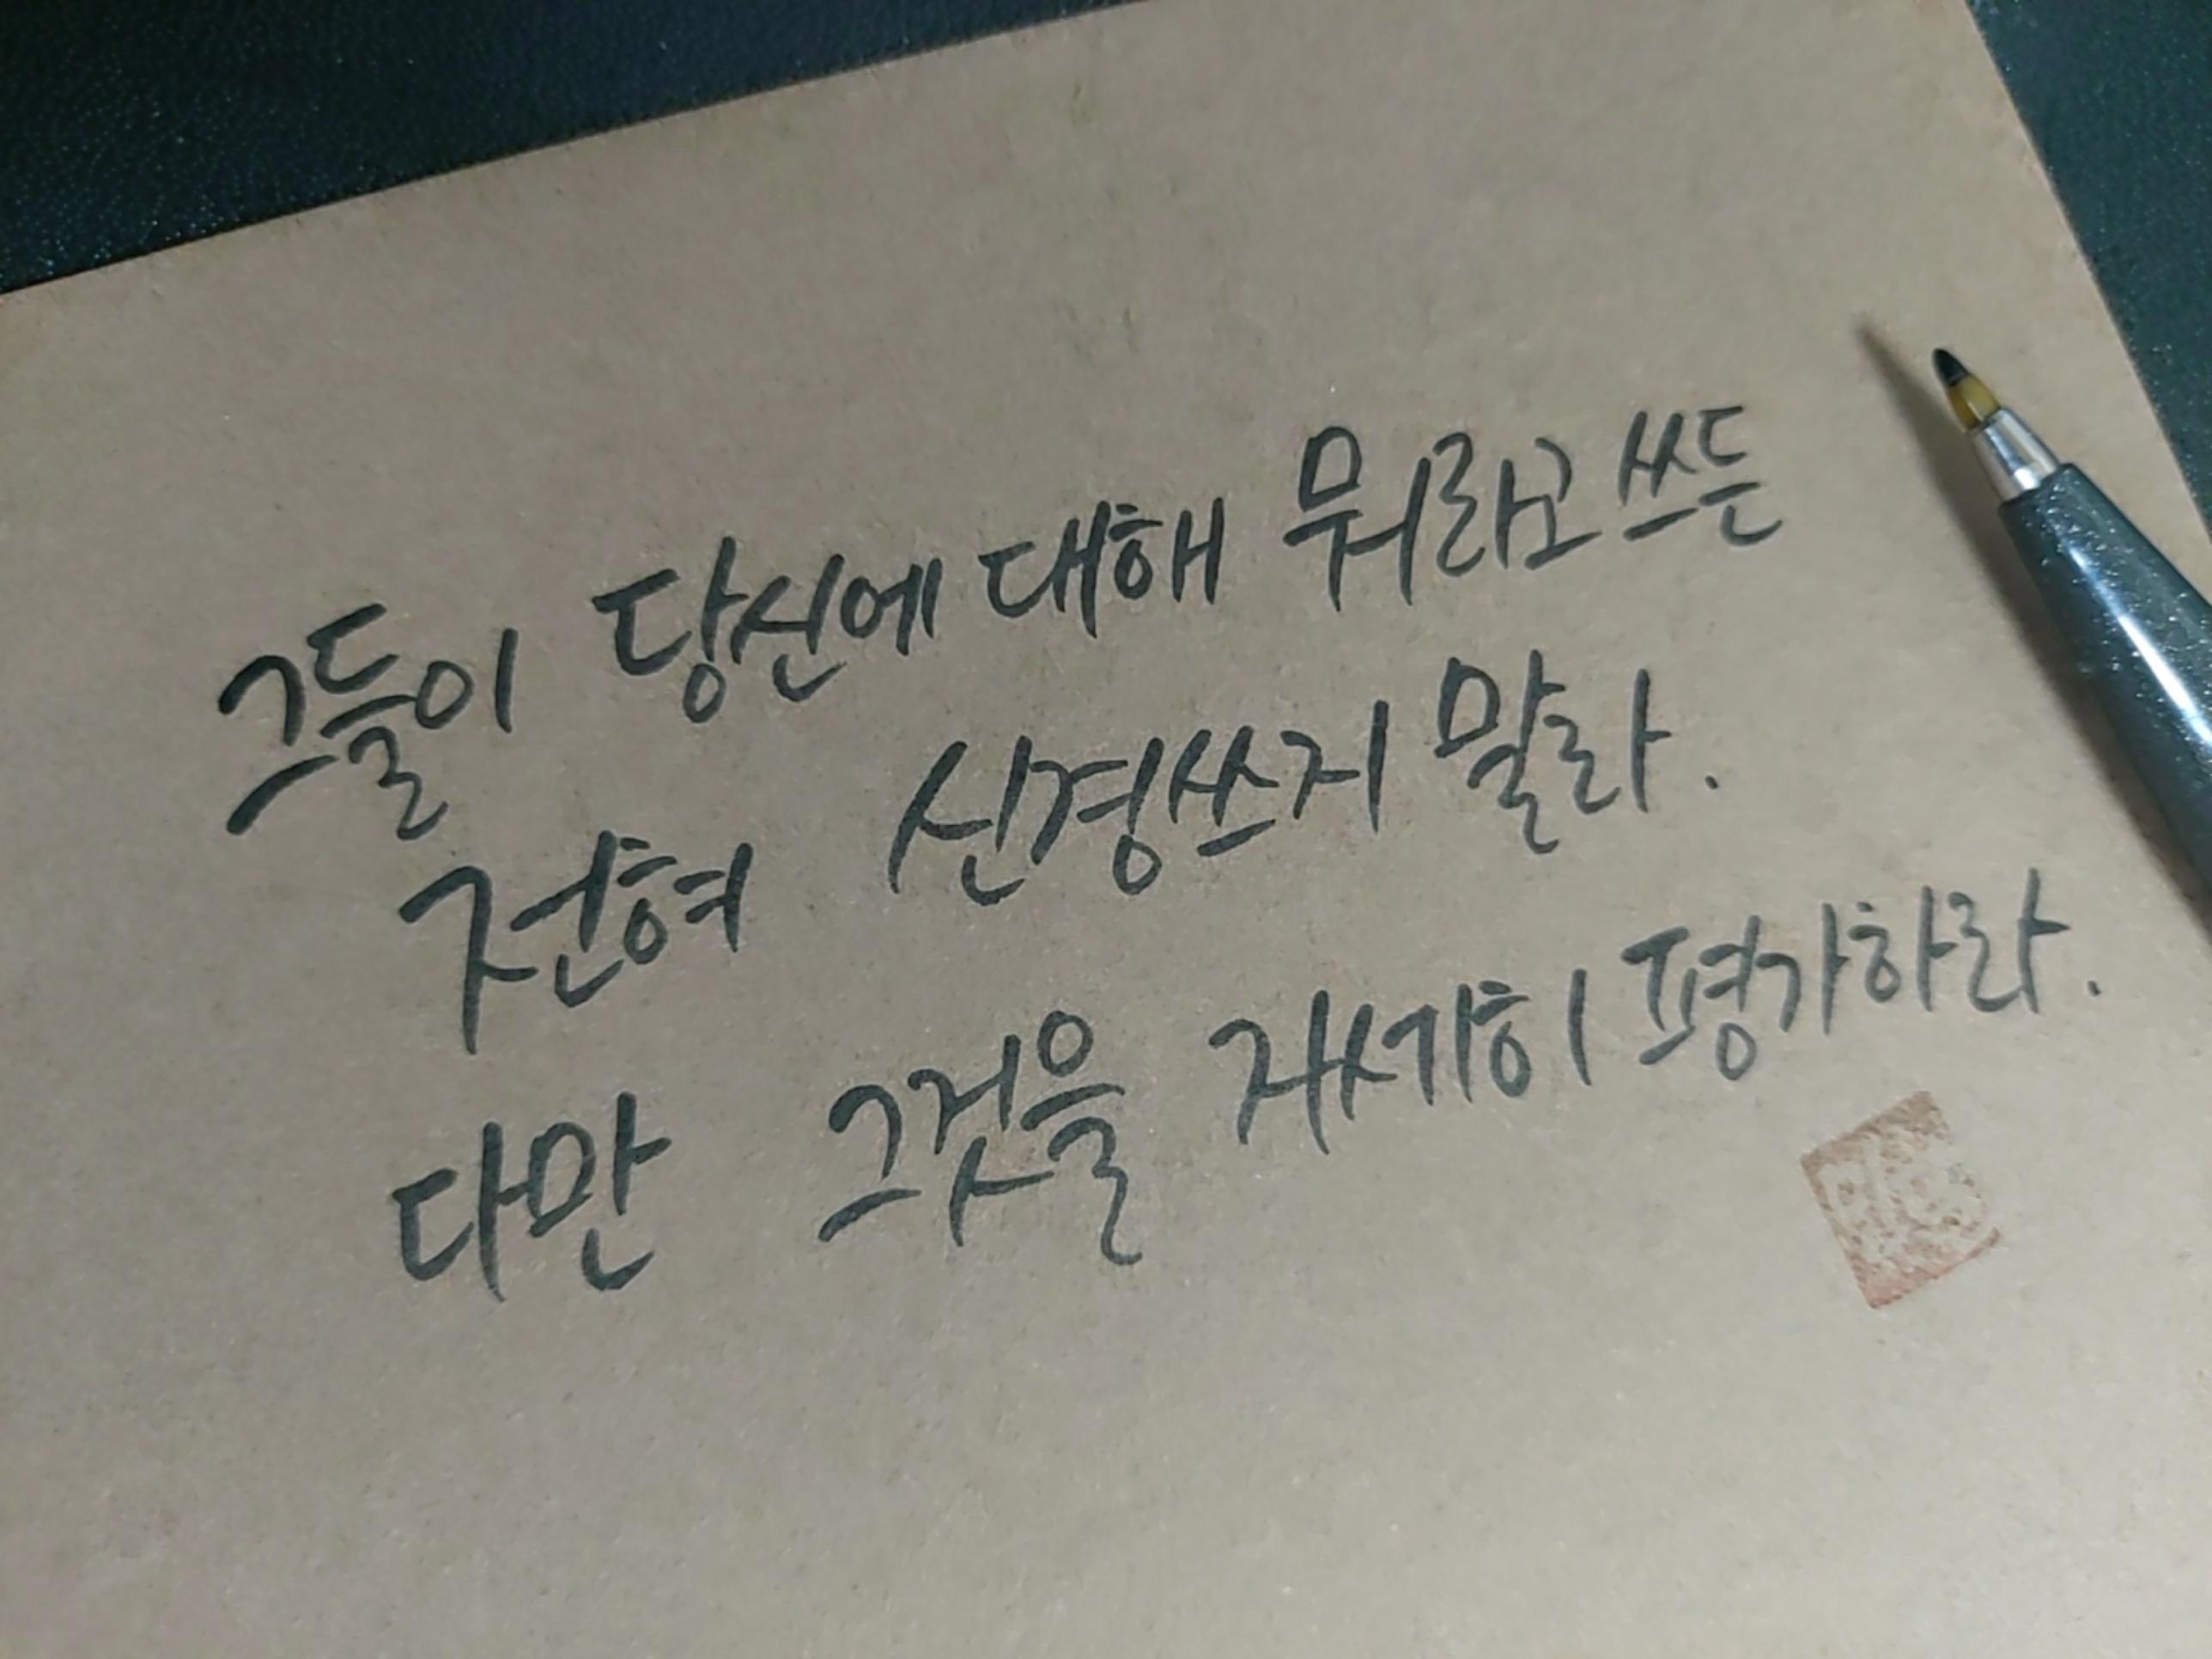 그들이 당신에 대해 뭐라고 쓰든
전혀 신경쓰지 말라.
다만 그것을 자세히 평가하라.